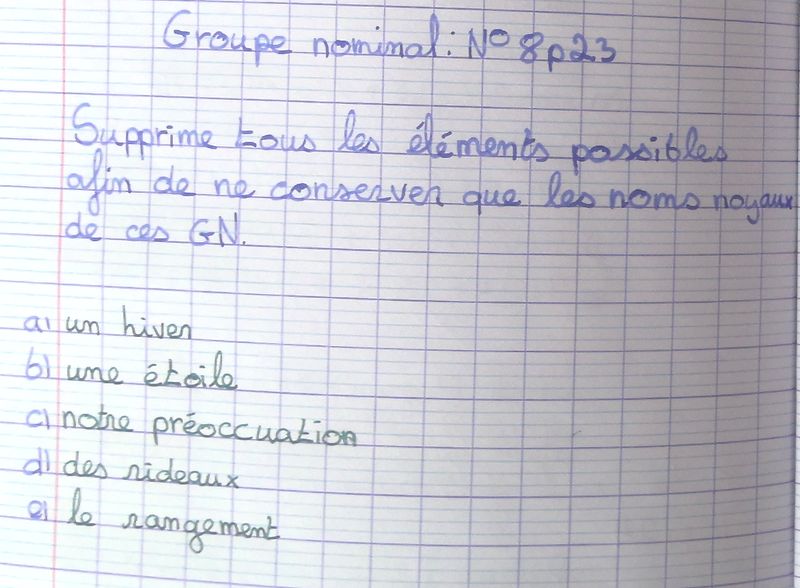 Groupe nominal : N° 8p23
Supprime tous les éléments possibles
afin de ne conserver que les noms noyaux
de ces GN.
a) un hiver
b) une étoile
c) notre préoccuation
d) des rideaux
e) le rangement